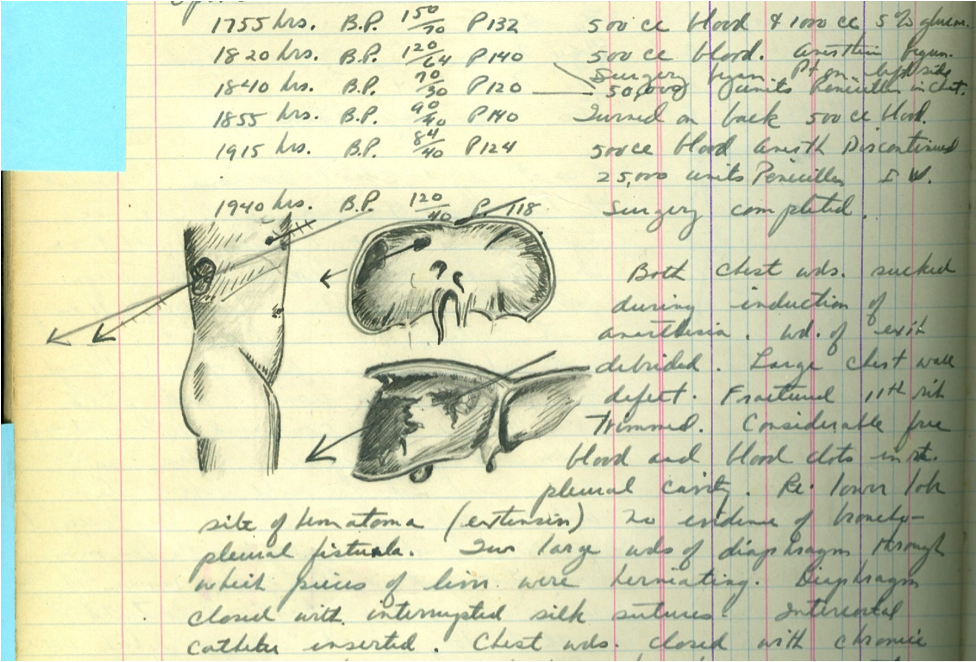 1755 hrs. B.P. 150/70 P132 500 cc blood & 1000 cc 5%
1820 hrs. B.P. 120/64 P140 500 cc blood. begun.
Surgery began. Pt on left side
1840 hrs. B.P. 70/30 P120 50,000 units Penicillin in chest.
1855 hrs. B.P. 90/40 P140 Turned on back 500 cc blood.
1915 hrs. B.P. 84/40 P124 500 cc blood Anesth Discontinued
25,000 units Penicillin
1940 hrs. B.P. 120/40 P. 118 Surgery completed.
Both chest wds. sucked
during induction of
anesthesia. Wd. of exit
debrided. Large chest wall
defect. Fractured 11th rib
Trimmed. Considerable free
blood and blood clots in rt.
pleural cavity. lower lobe
site of hematoma (extensive) no evidence of broncho-
pleural fistula. Two large wds of diaphragm through
which pieces of liver were herniating. Diaphragm
closed with interrupted silk sutures. Intercostal
catheter inserted. Chest wds. closed with chromic